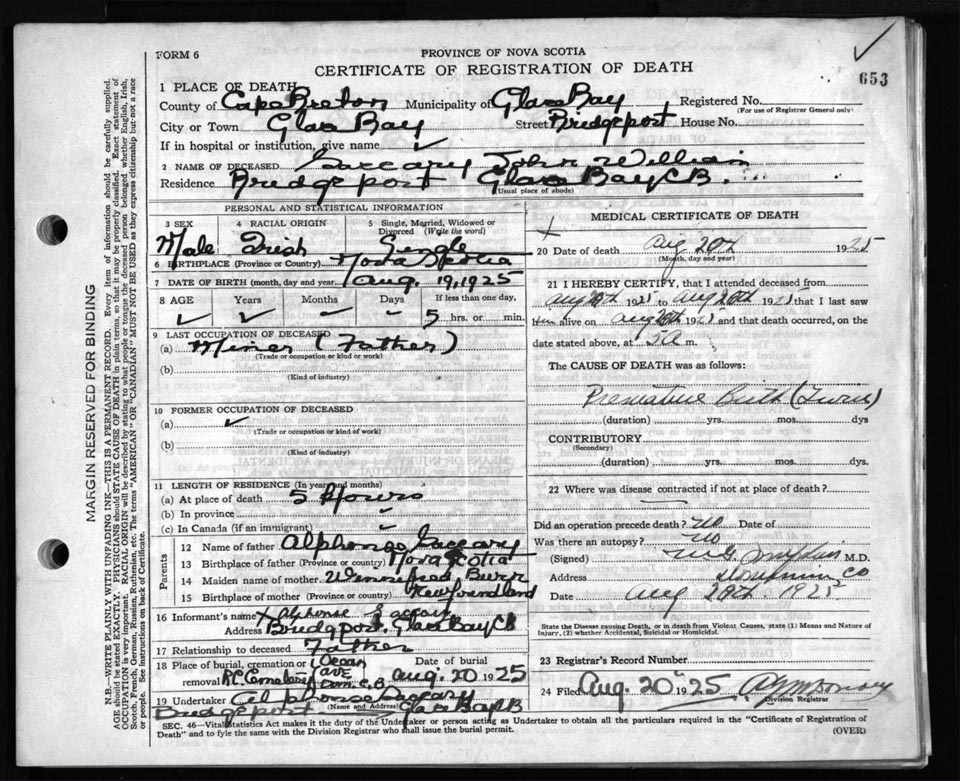 653
FORM 6
PROVINCE OF NOVA SCOTIA
CERTIFICATE OF REGISTRATION OF DEATH
1 PLACE OF DEATH
County of Cape Breton Municipality of Glace Bay Registered No.
(For use of Registrar General only)
City or Town Glace Bay Street Bridgeport House No.
If in hospital or institution, give name ✓
2 NAME OF DECEASED John William
Residence Bridgeport Glace Bay C.B.
(Usual place of abode)
PERSONAL AND STATISTICAL INFORMATION
3 SEX 4 RACIAL ORIGIN 5 Single, Married, Widowed or Divorced (Write the word)
Male Irish Single
6 BIRTHPLACE (Province or Country) Nova Scotia
7 DATE OF BIRTH (month, day and year) Aug. 19, 1925
8 AGE Years Months Days If less than one day,
5 hrs. or min.
9 LAST OCCUPATION OF DECEASED
(a) Miner (Father)
(Trade or occupation or kind or work)
(b)
(Kind of industry)
10 FORMER OCCUPATION OF DECEASED
(a) ✓
(Trade or occupation or kind of work)
(b)
(Kind of industry)
11 LENGTH OF RESIDENCE (In years and months)
(a) At place of death 5 Hours
(b) In province
(c) In Canada (if an immigrant) ✓
Parents
12 Name of father Alphonso
13 Birthplace of father (Province or country) Nova Scotia
14 Maiden name of mother Winnefred
15 Birthplace of mother (Province or country) Newfoundland
16 Informant's name x Alphonse
Address Bridgport, Glace Bay CB
17 Relationship to deceased Father
18 Place of burial, cremation or removal R.C. Cemetery Ocean Ave Dom. C.B Date of burial Aug. 20 1925
19 Undertaker Alphonse
(Name and Address)
Bridgeport Glace Bay CB
MEDICAL CERTIFICATE OF DEATH
20 Date of death Aug 20th 1925
(Month, day and year)
21 I HEREBY CERTIFY, that I attended deceased from
Aug 20th 1925 to Aug 20th 1925 that I last saw
him alive on Aug 20th 1925 and that death occurred, on the
date stated above, at 5 a m.
The CAUSE OF DEATH was as follows:
Premature Birth (Twins)
(duration) yrs. mos. dys
CONTRIBUTORY
(Secondary)
(duration) yrs. mos. dys.
22 Where was disease contracted if not at place of death?
Did an operation precede death? No Date of
Was there an autopsy? No
(Signed) M.D.
Address
Date Aug 20th. 1925
State the Disease causing Death, or in death from Violent Causes, state (1) Means and Nature of Injury, (2) whether Accidental, Suicidal or Homicidal.
23 Registrar's Record Number
24 Filed Aug. 20 1925
Division Registrar
SEC. 46—Vital Statistics Act makes it the duty of the Undertaker or person acting as Undertaker to obtain all the particulars required in the "Certificate of Registration of
Death" and to fyle the same with the Division Registrar who shall issue the burial permit. (OVER)
MARGIN RESERVED FOR BINDING
N.B.—WRITE PLAINLY WITH UNFADING INK—THIS IS A PERMANENT RECORD. Every item of information should be carefully supplied.
AGE should be stated EXACTLY. PHYSICIANS should STATE CAUSE OF DEATH in plain terms, so that it may be properly classified. Exact statement of
OCCUPATION is very important. RACIAL ORIGIN will be described by stating to what people or tongue the deceased person belonged whether English, Irish,
Scotch, French, German, Russian, Ruthenian, etc. The terms "AMERICAN" OR "CANADIAN" MUST NOT BE USED as they express citizenship but not a race
of people. See instructions on back of Certificate.